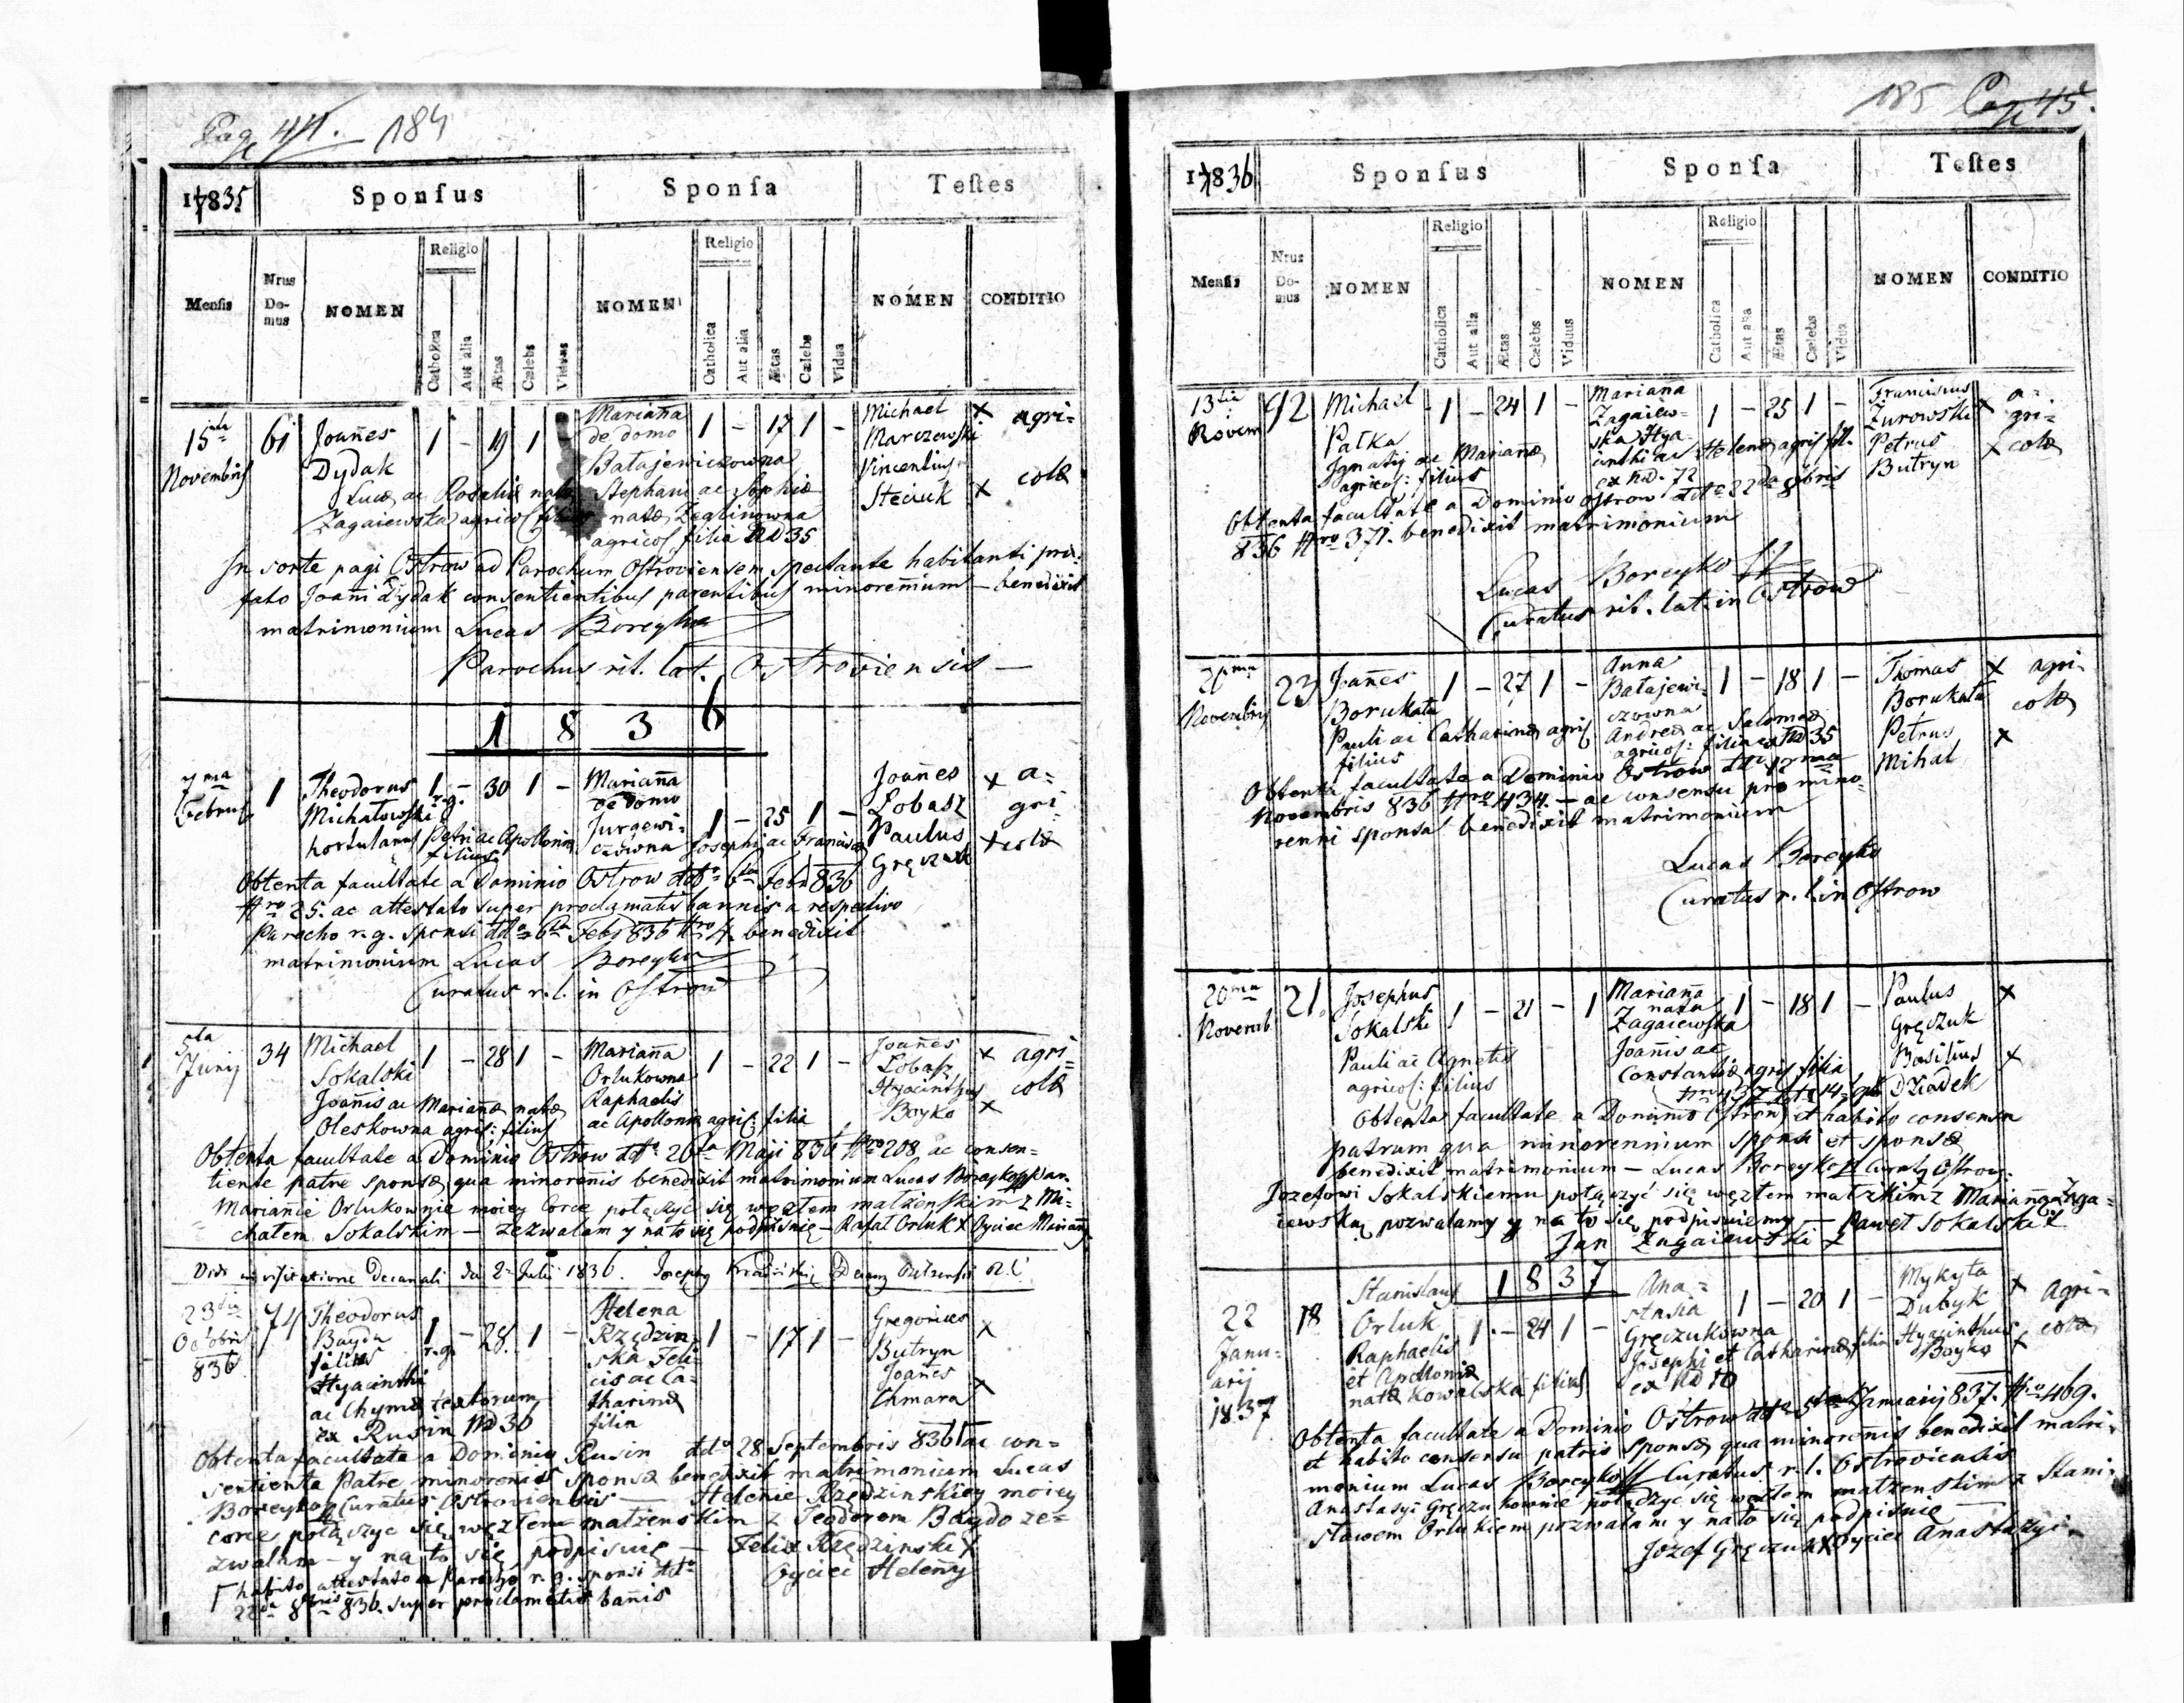 Pag 44. 184
17835
Sponsus
Sponsa
Testes
Mensis
Nrus Domus
NOMEN
Religio
Catholica
Aut alia
Ætas
Cælebs
Viduus
NOMEN
Religio
Catholica
Aut alia
Ætas
Cælebs
Vidua
NOMEN
CONDITIO
15ta Novembris
61
Joañes
Dydak
Lucæ ac Rosaliæ natæ
Zagaiewska agricol filius
1 - 19 1
Marianna
de domo
Batajewiczowna
Stephani ac Sophiæ
natæ Zeglinowna
agricol filia ND 35
1 - 17 1 -
Michael
Marczewski
Vincentius
Steciuk
x
x
agri-
colæ
In sorte pagi Ostrow ad Parochum Ostroviensem spectante habitanti præ-
fato Joañi Dydak consentientibus parentibus minorennium - benedixit
matrimonium Lucas Boreyko
Parochus rit. lat. Ostroviensis
1 8 3 6
7ma
Februar
1
Theodorus
Michałowski
hortulanus Petri ac Apolloniæ
filius
1 r.g. - 30 1 -
Marianna
de domo
Jurgewi-
czowna Josephi ac Franciscæ
1 - 25 1 -
Joañes
Lobasz
Paulus
Gręczuk
x a-
gri
x colæ
Obtenta facultate a Dominio Ostrow ddto 6ta Feb 836
Nro 25. ac attestato super proclamatis bannis a respectivo
Parocho r.g. sponsi ddto 6ta Feb 836 Nro 4. benedixit
matrimonium Lucas Boreyko
Curatus r.l. in Ostrow
5ta
Junij
34
Michael
Sokalski
Joannis ac Mariannæ natæ
Oleskowna agric: filius
1 - 28 1 -
Marianna
Orlukowna
Raphaelis
ac Apolloniæ agric: filia
1 - 22 1 -
Joañes
Lobasz
Hyacinthus
Boyko
x
x
agri-
colæ
Obtenta facultate a Dominio Ostrow ddto 26ta Maji 836 Nro 208 ac consen-
tiente patre sponsæ qua minorennis benedixit matrimonium Lucas Boreyko
Mariannie Orlukownie moiey Corce połączyć się węzłem małżenskim z Mi-
chałem Sokalskim - zezwalam y na to się podpisuię - Rafał Orluk x Oyciec Marianny
Vidi in visitatione Decanali die 2 Julii 1836.
23tia
Octobris
836
74
Theodorus
Bayda
filius
Hyacinthi
ac Chymæ textorum
ex Rusin ND 36
1 r.g. - 28. 1 -
Helena
Rzędzin-
ska Feli-
cis ac Ca-
tharinæ
filia
1 - 17 1 -
Gregorius
Butryn
Joañes
Chmara
x
x
Obtenta facultate a Dominio Rusin ddto 28 Septembris 836 ac con-
sentiente Patre minorennis sponsæ benedixit matrimonium Lucas
Boreyko Curatus Ostroviensis - Helenie Rzędzinskiey moiey
corce połączyc się węzłem małzenskim z Teodorem Baydo ze-
zwalam - y na to się podpisuię - Felix Rzędzinski x
Oyciec Heleny
habito attestato a Parocho r.g. sponsi ddto
22da 8bris 836. super proclamatis bañis
185 Pag 45.
17836
Sponsus
Sponsa
Testes
Mensis
Nrus Domus
NOMEN
Religio
Catholica
Aut alia
Ætas
Cælebs
Viduus
NOMEN
Religio
Catholica
Aut alia
Ætas
Cælebs
Vidua
NOMEN
CONDITIO
13tia
Novem
92
Michael
Pałka
Ignatij ac Mariannæ
agricol: filius
1 - 24 1 -
Marianna
Zagaiew-
ska Hya-
cinthi ac Helenæ agric fil.
ex ND. 72
1 - 25 1 -
Franciscus
Zurowski
Petrus
Butryn
x
x
a-
gri-
colæ
Obtenta facultate a Dominio Ostrow ddto 22da 8bris
836 Nro 371. benedixit matrimonium
Lucas Boreyko
Curatus rit. lat. in Ostrow
Novembris
23
Joañes
Borukała
Pauli ac Catharinæ agric.
filius
1 - 27 1 -
Anna
Batajewi-
czowna
Andreæ ac Salomeæ
agricol: filia ex ND 35
1 - 18 1 -
Thomas
Borukała
Petrus
Mihal
x
x
agri-
colæ
Obtenta facultate a Dominio Ostrow ddto 12ma
Novembris 836 Nro 434. - ac consensu pro mino-
renni sponsa benedixit matrimonium
Lucas Boreyko
Curatus r. l. in Ostrow
20ma
Novemb.
21.
Josephus
Sokalski
Pauli ac Agnetis
agricol: filius
1 - 21 - 1
Marianna
nata
Zagaiewska
Joannis ac
Constantiæ agric filia
1 - 18 1 -
Paulus
Gręczuk
Basilius
Dziadek
x
x
Obtenta facultate a Dominio Ostrow et habito consensu
patrum qua minorennium sponsi et sponsæ
benedixit matrimonium - Lucas Boreyko Curat Ostrov:
Jozefowi Sokalskiemu połączyć się węzłem małzkim z Marianną Zaga-
iewską pozwalamy y na to się podpisuiemy - Paweł Sokalski x
Jan Zagaiewski x
1 8 3 7
22
Janu-
arij
1837
18
Stanislaus
Orluk
Raphaelis
et Apolloniæ
natæ Kowalska filius
1. - 24 1 -
Ana-
stasia
Gręczukowna
Josephi et Catharinæ filia
ex ND 10
1 - 20 1 -
Mykyta
Dubyk
Hyacinthus
Boyko
x
x
agri-
colæ
Obtenta facultate a Dominio Ostrow ddto 5ta Januarij 837. Nro 469.
et habito consensu patris sponsæ qua minorennis benedixit matri-
monium Lucas Boreyko Curatus r.l. Ostroviensis
Anastasyi Gręczukownie połączyc się węzłem małzenskim z Stani-
sławem Orlukiem pozwalam y na to się podpisuię
Jozef Gręczuk x Oyciec Anastazyi